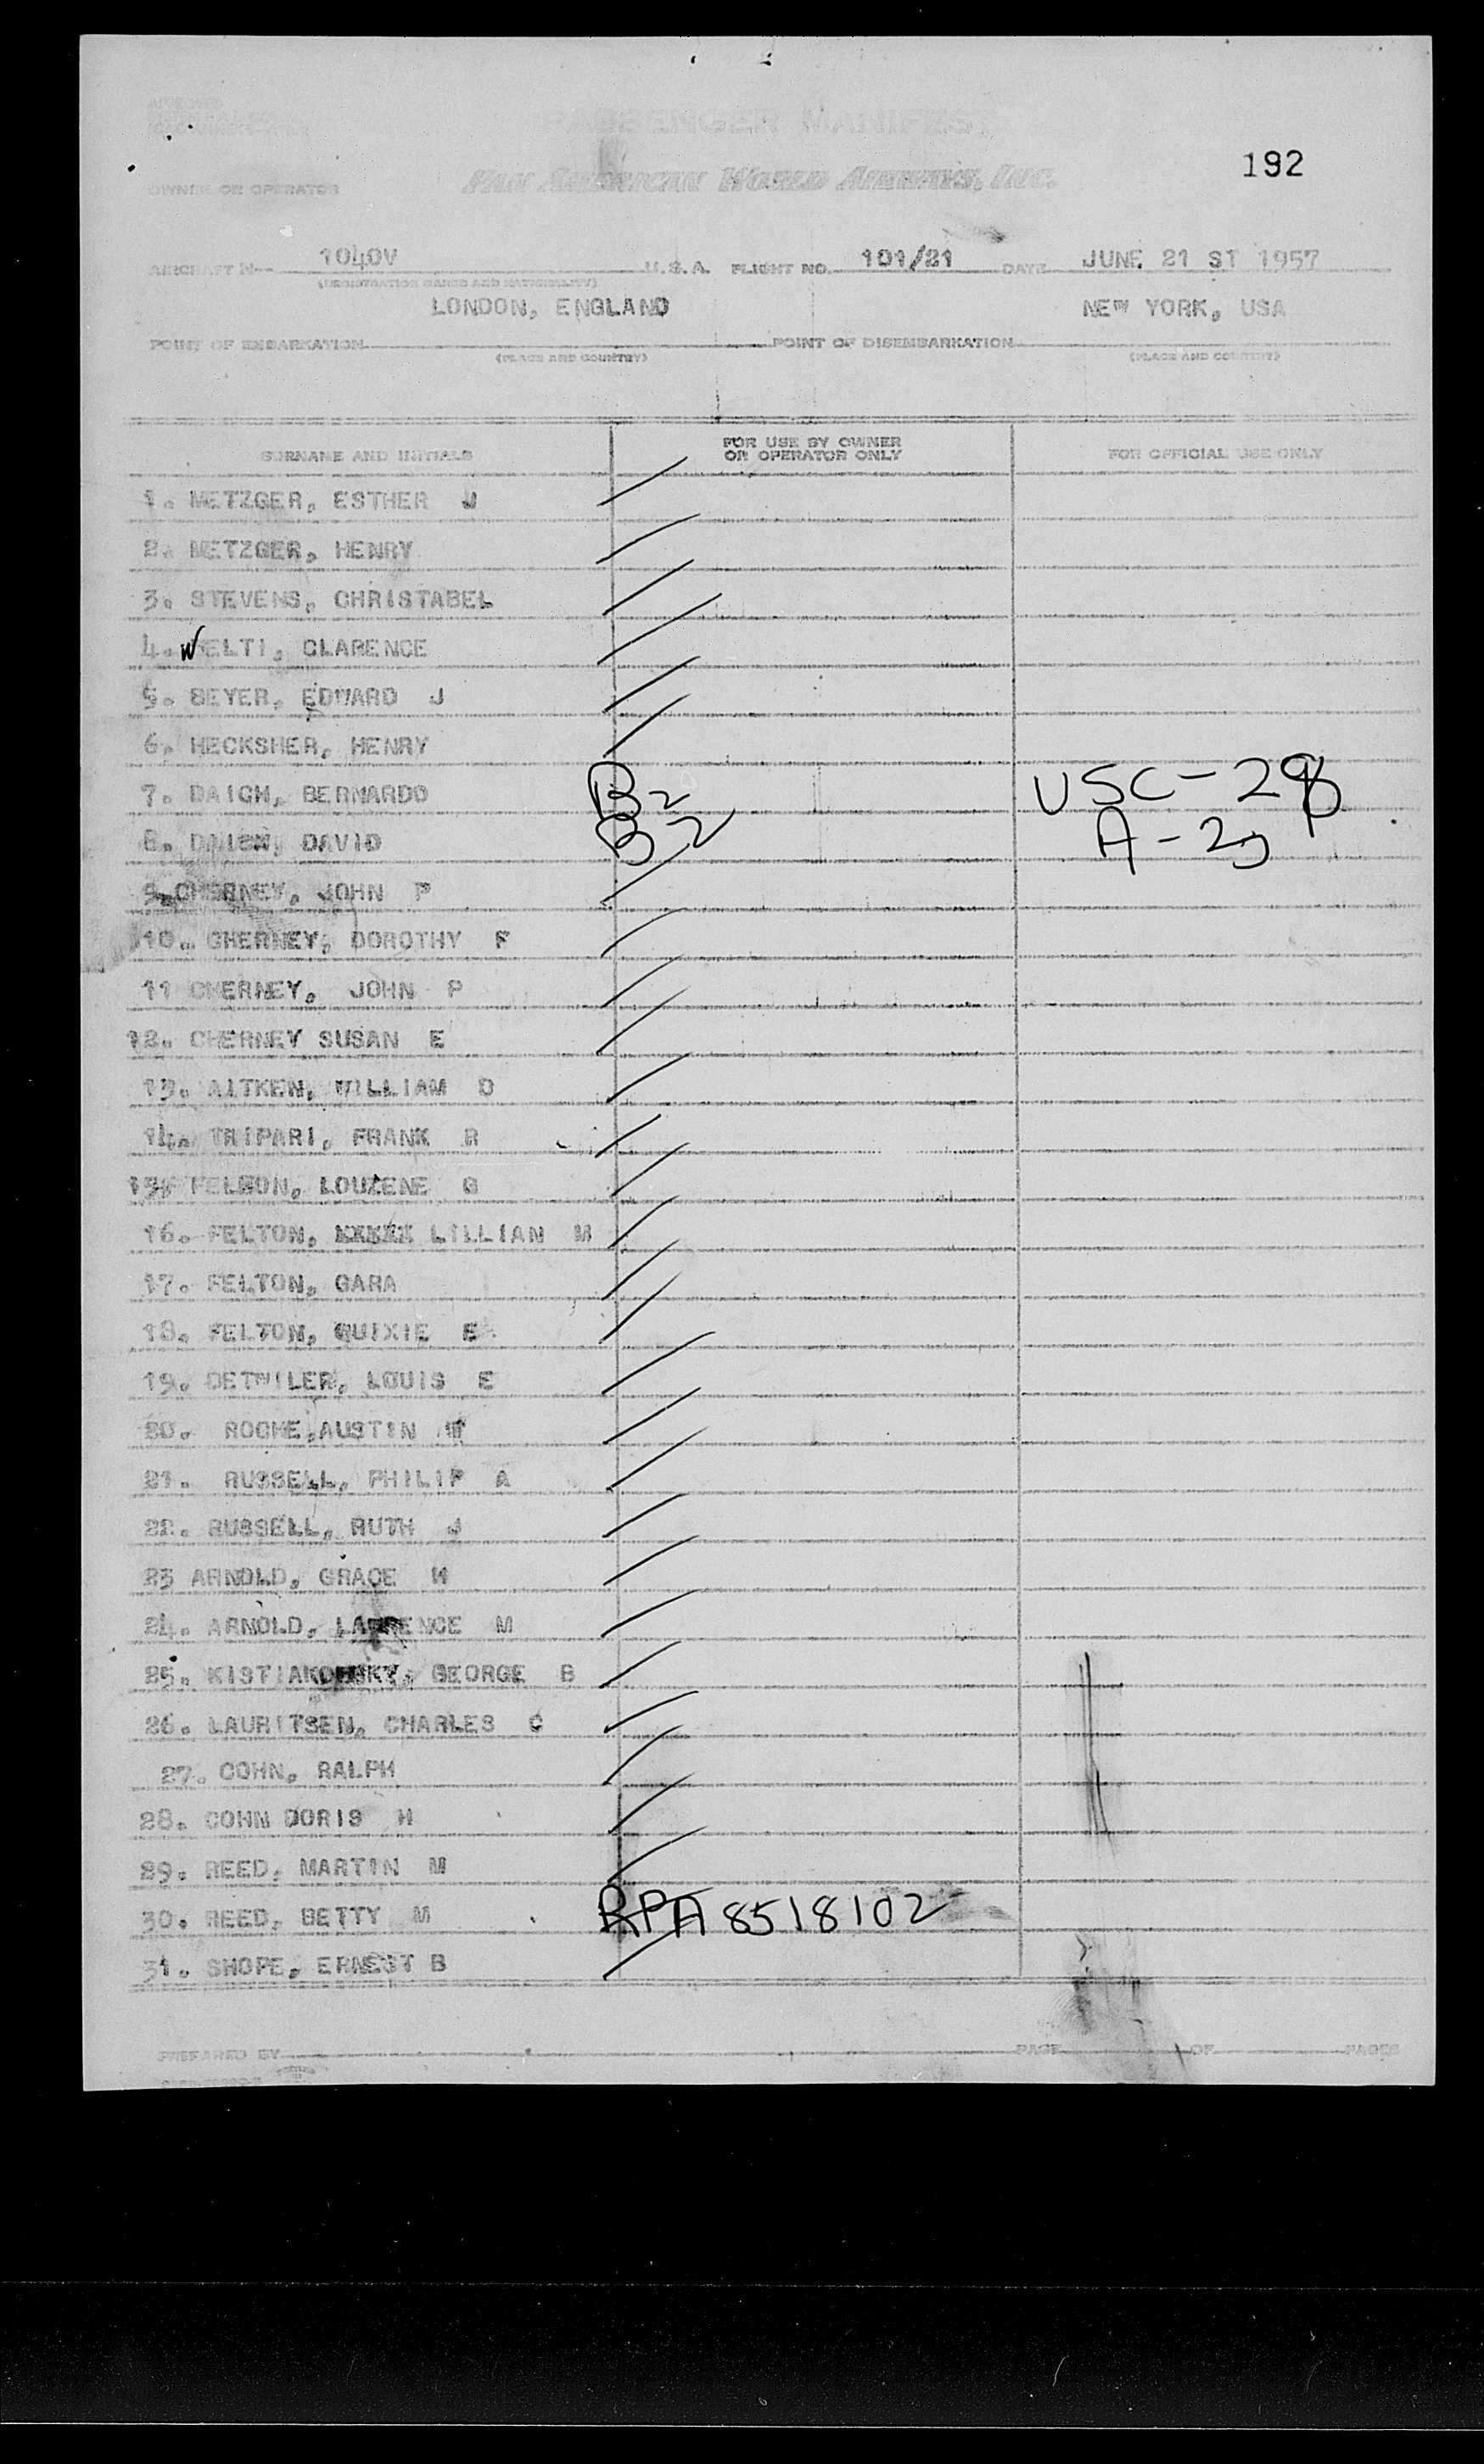 PASSENGER MANIFEST
192
OWNER OR OPERATOR PAN AMERICAN WORLD AIRWAYS, INC.
AIRCRAFT N- 1040V U.S.A. FLIGHT NO. 101/21 DATE JUNE 21 ST 1957
(REGISTRATION MARKS AND NATIONALITY)
LONDON, ENGLAND NEW YORK, USA
POINT OF EMBARKATION POINT OF DISEMBARKATION
(PLACE AND COUNTRY) (PLACE AND COUNTRY)
SURNAME AND INITIALS FOR USE BY OWNER OR OPERATOR ONLY FOR OFFICIAL USE ONLY
1. METZGER, ESTHER J
2. METZGER, HENRY
3. STEVENS, CHRISTABEL
4. WELTI, CLARENCE
5. BEYER, EDWARD J
6. HECKSHER, HENRY
7. DAICH, BERNARDO B2 USC-28
8. DAVID B2 A-2
9. CHERNEY, JOHN P
10. CHERNEY, DOROTHY F
11 CHERNEY, JOHN P
12. CHERNEY SUSAN E
13. AITKEN, WILLIAM D
14. TRIPARI, FRANK R
15. LOUZENE G
16. FELTON, LILLIAN M
17. FELTON, GARA
18. FELTON, QUIXIE E
19. DETWILER, LOUIS E
20. ROCHE, AUSTIN
21. RUSSELL, PHILIP A
22. RUSSELL, RUTH J
23 ARNOLD, GRACE H
24. ARNOLD, LAWRENCE M
25. KISTIAKOWSKY, GEORGE B
26. LAURITSEN, CHARLES C
27. COHN, RALPH
28. COHN DORIS H
29. REED, MARTIN M
30. REED, BETTY M RPA 8518102
31. SHOPE, ERNEST B
PREPARED BY PAGE OF PAGES